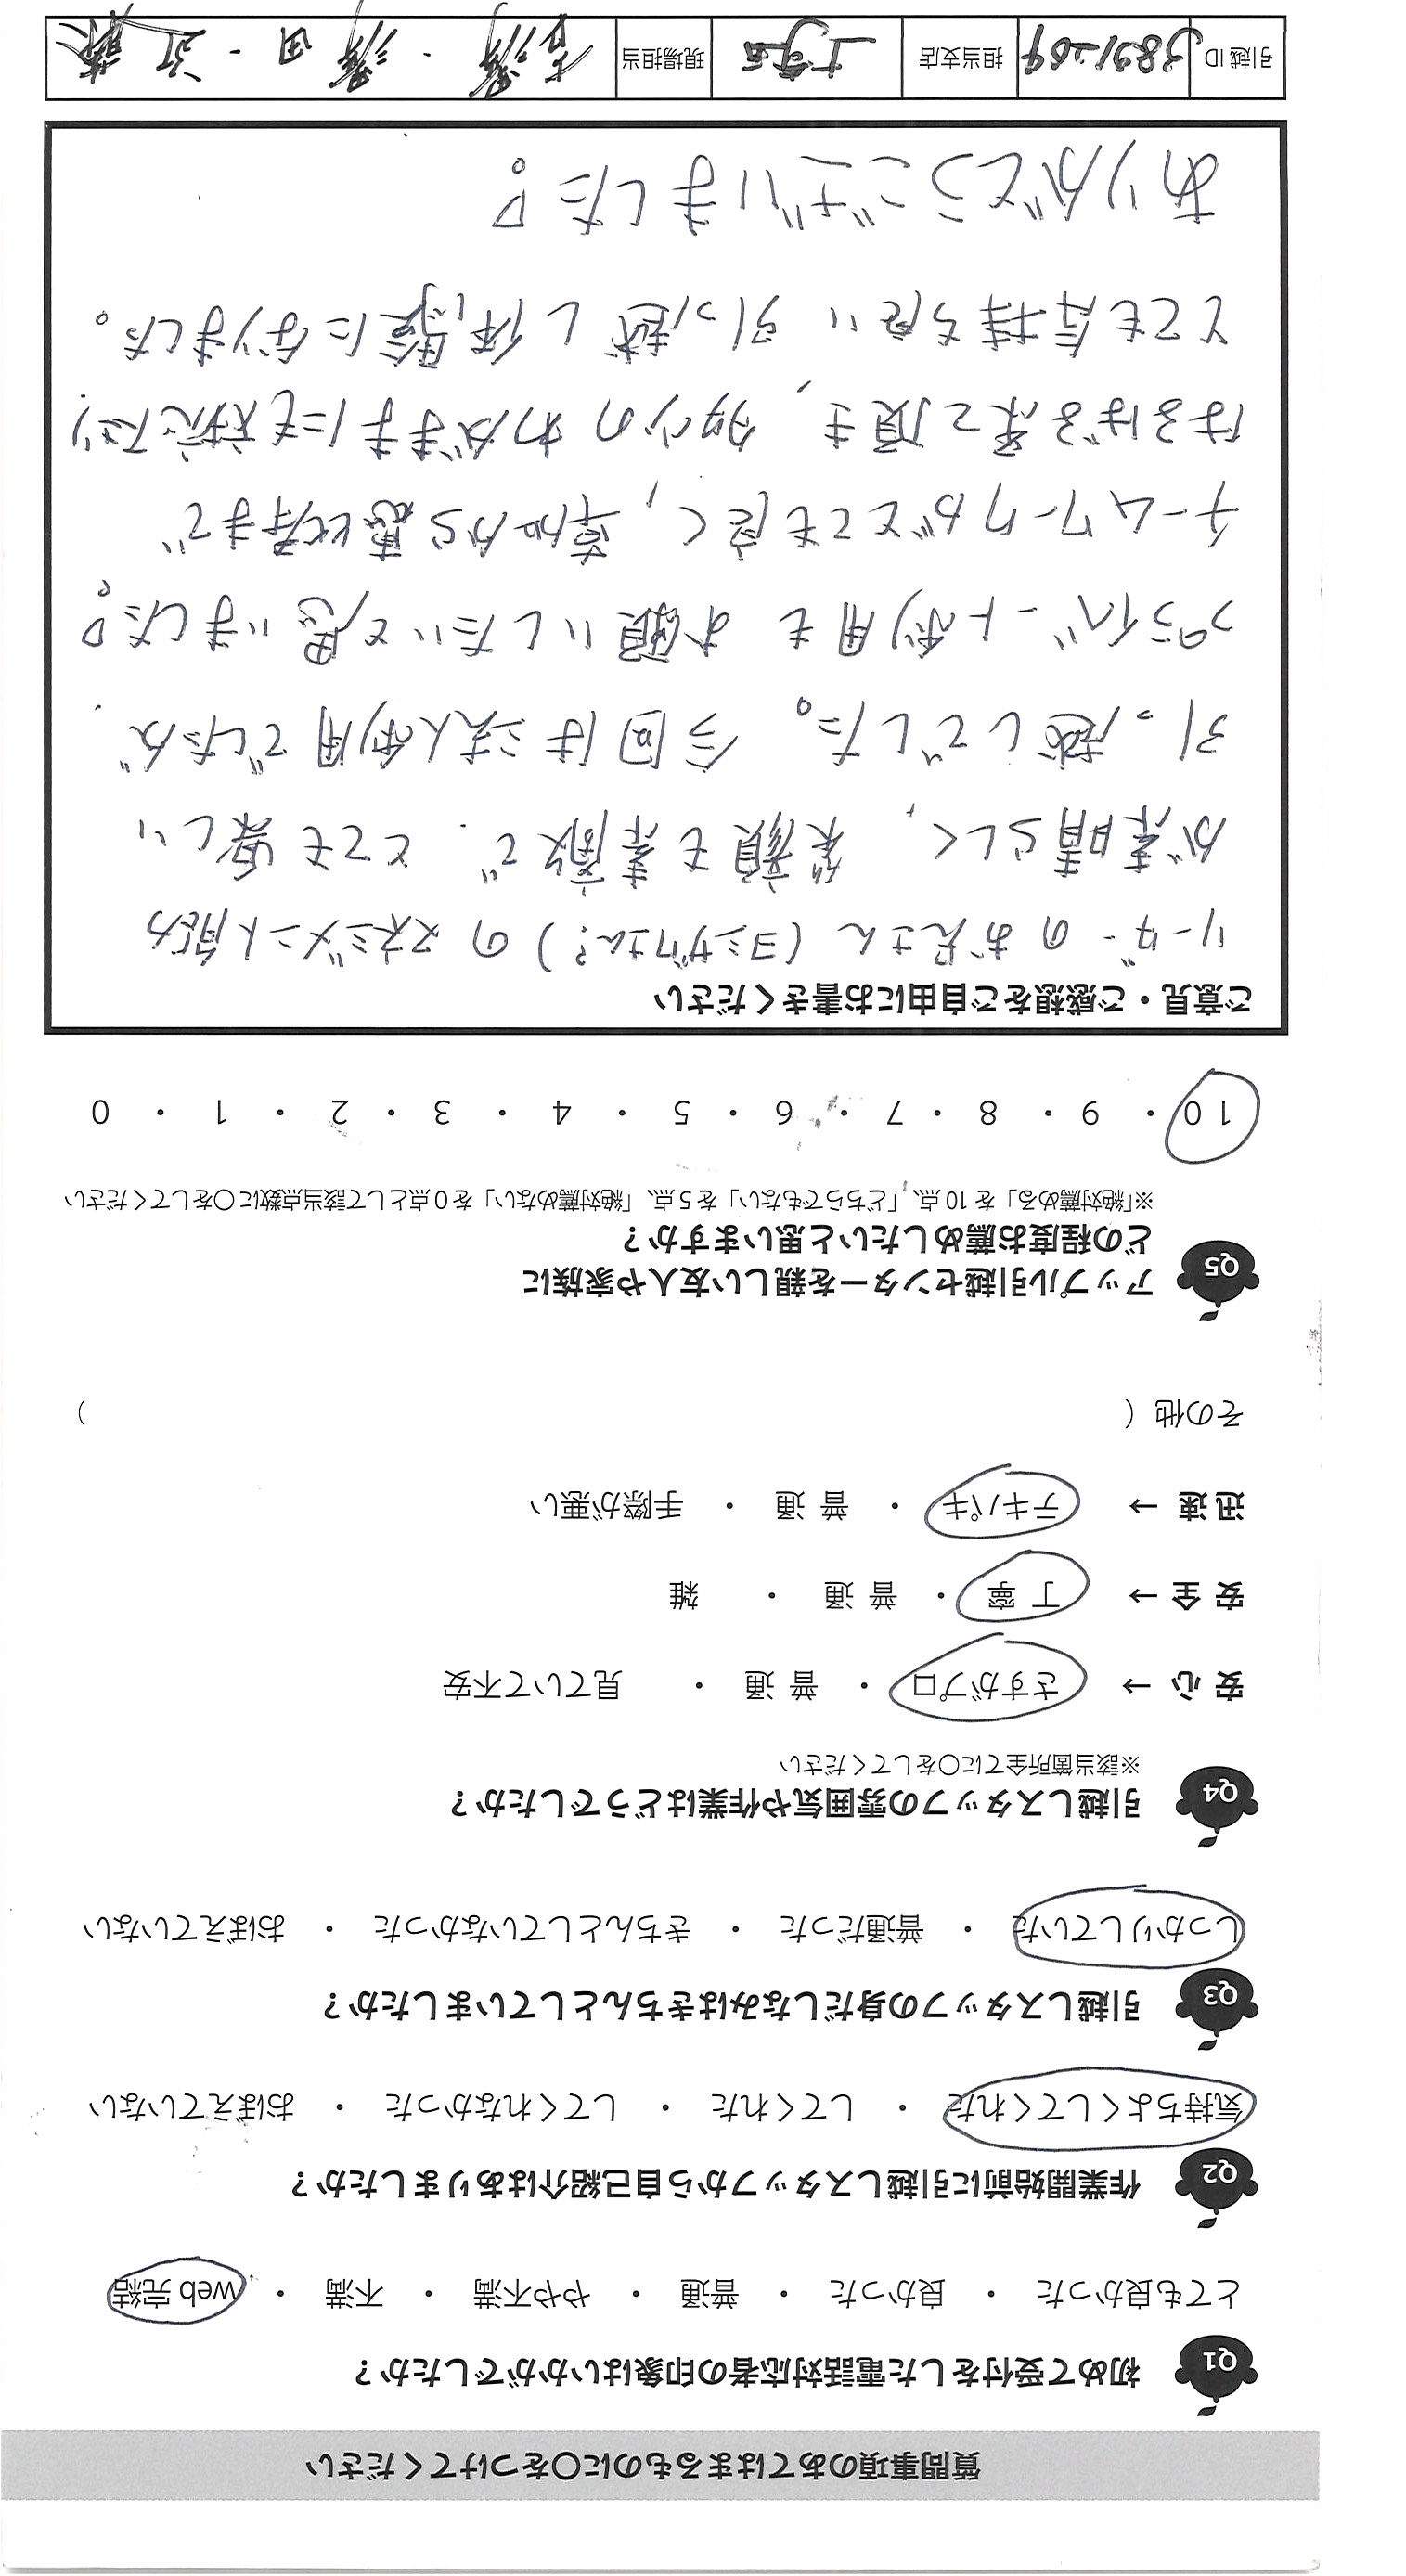 質問事項のあてはまるものに〇をつけてください
Q1 初めて受付をした電話対応者の印象はいかがでしたか？
とても良かった ・ 良かった ・ 普通 ・ やや不満 ・ 不満 ・ web 完結
Q2 作業開始前に引越しスタッフから自己紹介はありましたか？
気持ちよくしてくれた ・ してくれた ・ してくれなかった ・ おぼえていない
Q3 引越しスタッフの身だしなみはきちんとしていましたか？
しっかりしていた ・ 普通だった ・ きちんとしていなかった ・ おぼえていない
Q4 引越しスタッフの雰囲気や作業はどうでしたか？
※該当箇所全てに〇をしてください
安 心 → さすがプロ ・ 普 通 ・ 見ていて不安
安 全 → 丁 寧 ・ 普 通 ・ 雑
迅 速 → テキパキ ・ 普 通 ・ 手際が悪い
その他（ ）
Q5 アップル引越センターを親しい友人や家族に
どの程度お薦めしたいと思いますか？
※「絶対薦める」を 10 点、「どちらでもない」を 5 点、「絶対薦めない」を 0 点として該当点数に〇をしてください
10 ・ 9 ・ 8 ・ 7 ・ 6 ・ 5 ・ 4 ・ 3 ・ 2 ・ 1 ・ 0
ご意見・ご感想をご自由にお書きください
リーダーのお兄さん（ヨシザワさん？）のマネジメント能力
が素晴らしく、笑顔も素敵で、とても楽しい
引っ越しでした。今回は法人利用でしたが、
プライベート利用もお願いしたいと思いました。
チームワークがとても良く、草加から恵比寿まで
はるばる来て頂き、多少のわがままにも対応下さり
とても気持ち良い引っ越し体験になりました。
ありがとうございました。
引越 ID 担当支店 現場担当